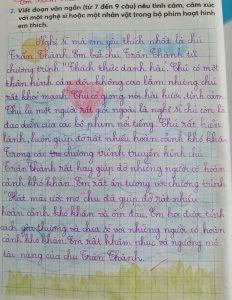 2. Viết đoạn văn ngắn (từ 7 đến 9 câu) nêu tình cảm, cảm xúc
với một nghệ sĩ hoặc một nhân vật trong bộ phim hoạt hình
em thích.
Nghệ sĩ mà em yêu thích nhất là chú
Trấn Thành. Em biết chú Trấn Thành từ
chương trình " Thách thức danh hài. Chú có một
thân hình cân đối, không cao lắm nhưng chú
rất khỏe mạnh. Chú có giọng nói hài hước, tình cảm.
Chú là một người rất ngoài là nghệ sĩ chú còn là
đạo diễn của các bộ phim nổi tiếng. Chú rất hiền
lành, luôn giúp đỡ rất nhiều hoàn cảnh khó khăn.
Trong các chương trình truyền hình chú
Trấn Thành rất hay giúp đỡ những người có hoàn
cảnh khó khăn. Em rất ấn tượng với chương trình
Hát mãi ước mơ chú đã giúp đỡ rất nhiều
hoàn cảnh khó khăn và ốm đau. Em học được tính
cách yêu thương và chia sẻ với những người có hoàn
cảnh khó khăn. Em rất khâm phục và ngưỡng mộ
tài năng của chú Trấn Thành.